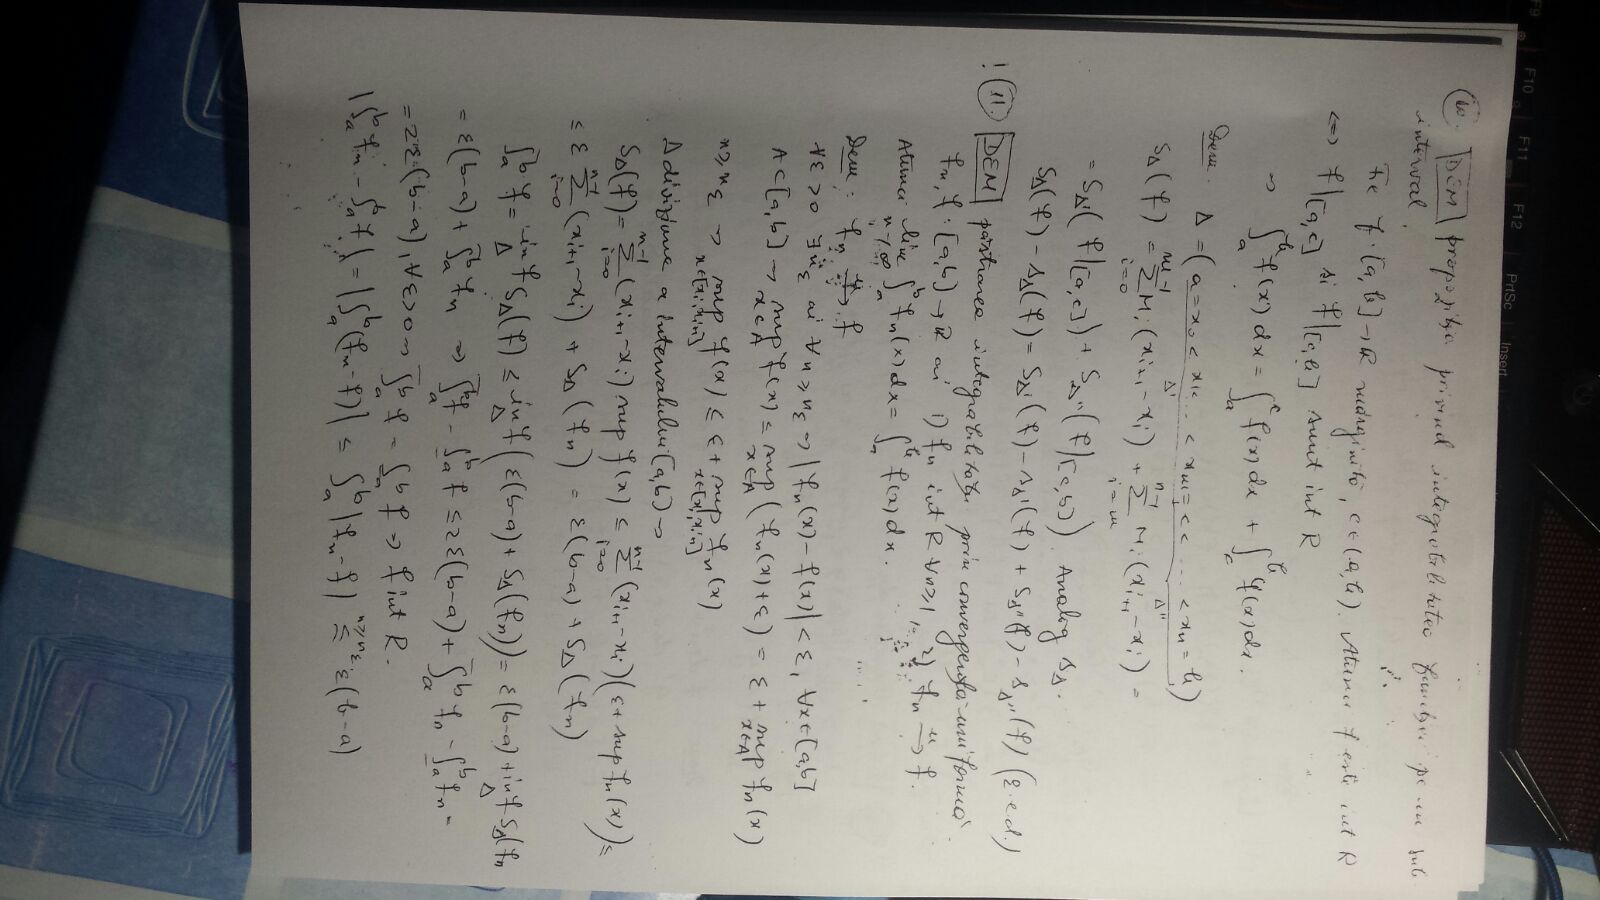 F9 F10 F11 F12 PrtSc Insert
10. DEM propoziția privind integrabilitatea funcției pe un sub
interval.
Fie f : [a,b] → R mărginită, c ∈ (a,b). Atunci f este int R
⇔ f|[a,c] și f|[c,b] sunt int R
⇒ ∫_a^b f(x) dx = ∫_a^c f(x) dx + ∫_c^b f(x) dx.
Dem. Δ = (a = x₀ < x₁ < ... < x_m = c < ... < x_n = b)
Δ' Δ''
S_Δ(f) = Σ_{i=0}^{m-1} M_i (x_{i+1} - x_i) + Σ_{i=m}^{n-1} M_i (x_{i+1} - x_i) =
= S_Δ'(f|[a,c]) + S_Δ''(f|[c,b]) Analog s_Δ.
S_Δ(f) - s_Δ(f) = S_Δ'(f) - s_Δ'(f) + S_Δ''(f) - s_Δ''(f) (q.e.d.)
! 11. DEM păstrarea integrabilității prin convergență uniformă
f_n, f : [a,b] → R aî 1) f_n int R ∀n≥1, 2) f_n →^u f.
Atunci lim_{n→∞} ∫_a^b f_n(x) dx = ∫_a^b f(x) dx.
Dem: f_n →^u f
∀ε>0 ∃n_ε aî ∀n≥n_ε ⇒ |f_n(x) - f(x)| < ε, ∀x∈[a,b]
A⊂[a,b] ⇒ sup_{x∈A} f(x) ≤ sup_{x∈A} (f_n(x)+ε) = ε + sup_{x∈A} f_n(x)
n≥n_ε ⇒ sup_{x∈[x_i,x_{i+1}]} f(x) ≤ ε + sup_{x∈[x_i,x_{i+1}]} f_n(x)
Δ diviziune a intervalului [a,b] ⇒
S_Δ(f) = Σ_{i=0}^{n-1} (x_{i+1} - x_i) sup f(x) ≤ Σ_{i=0}^{n-1} (x_{i+1} - x_i)(ε + sup f_n(x)) ≤
≤ ε Σ_{i=0}^{n-1} (x_{i+1} - x_i) + S_Δ(f_n) = ε(b-a) + S_Δ(f_n)
∫̄_a^b f = inf_Δ S_Δ(f) ≤ inf_Δ (ε(b-a) + S_Δ(f_n)) = ε(b-a) + inf_Δ S_Δ(f_n
= ε(b-a) + ∫̄_a^b f_n ⇒ ∫̄_a^b f - ∫̲_a^b f ≤ 2ε(b-a) + ∫̄_a^b f_n - ∫̲_a^b f_n =
= 2ε(b-a), ∀ε>0 ⇒ ∫̄_a^b f = ∫̲_a^b f ⇒ f int R.
|∫_a^b f_n - ∫_a^b f| = |∫_a^b (f_n - f)| ≤ ∫_a^b |f_n - f| ≤^{n≥n_ε} ε(b-a)